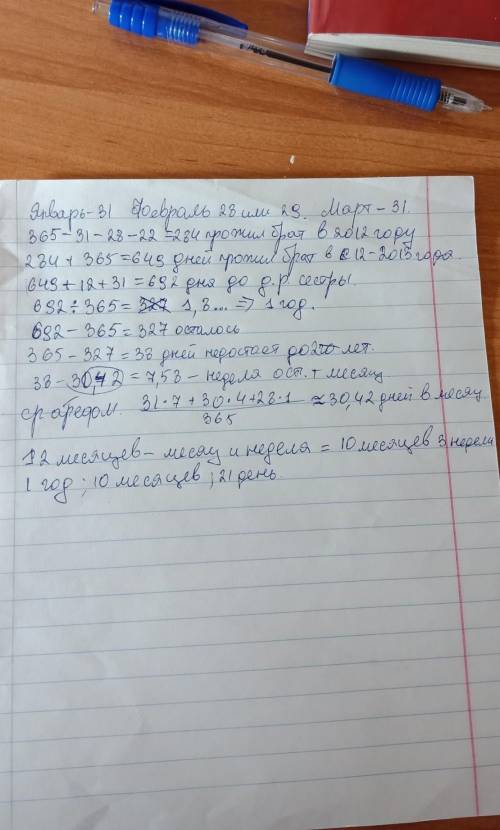 Январь-31 Февраль 28 или 29. Март-31.
365-31-28-22=284 прожил брат в 2012 году
284+365=649 дней прожил брат в 12-2013 года.
649+12+31=692 дня до д.р сестры.
692÷365= 1,8...⇒1 год.
692-365=327 осталось
365-327=38 дней недостает до лет.
38-30,42=7,58-неделя ост.+месяц
31·7+30·4+28·1
365
≈30,42 дней в месяц.
12 месяцев-месяц и неделя=10 месяцев 3 недели
1 год; 10 месяцев; 21 день.